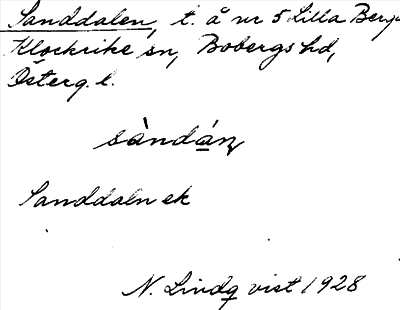 Sanddalen, t. å nr 5 Lilla Berga
Klockrike sn, Bobergs hd,
Österg. l.
sàndán
Sanddaln ek
N. Lindqvist 1928